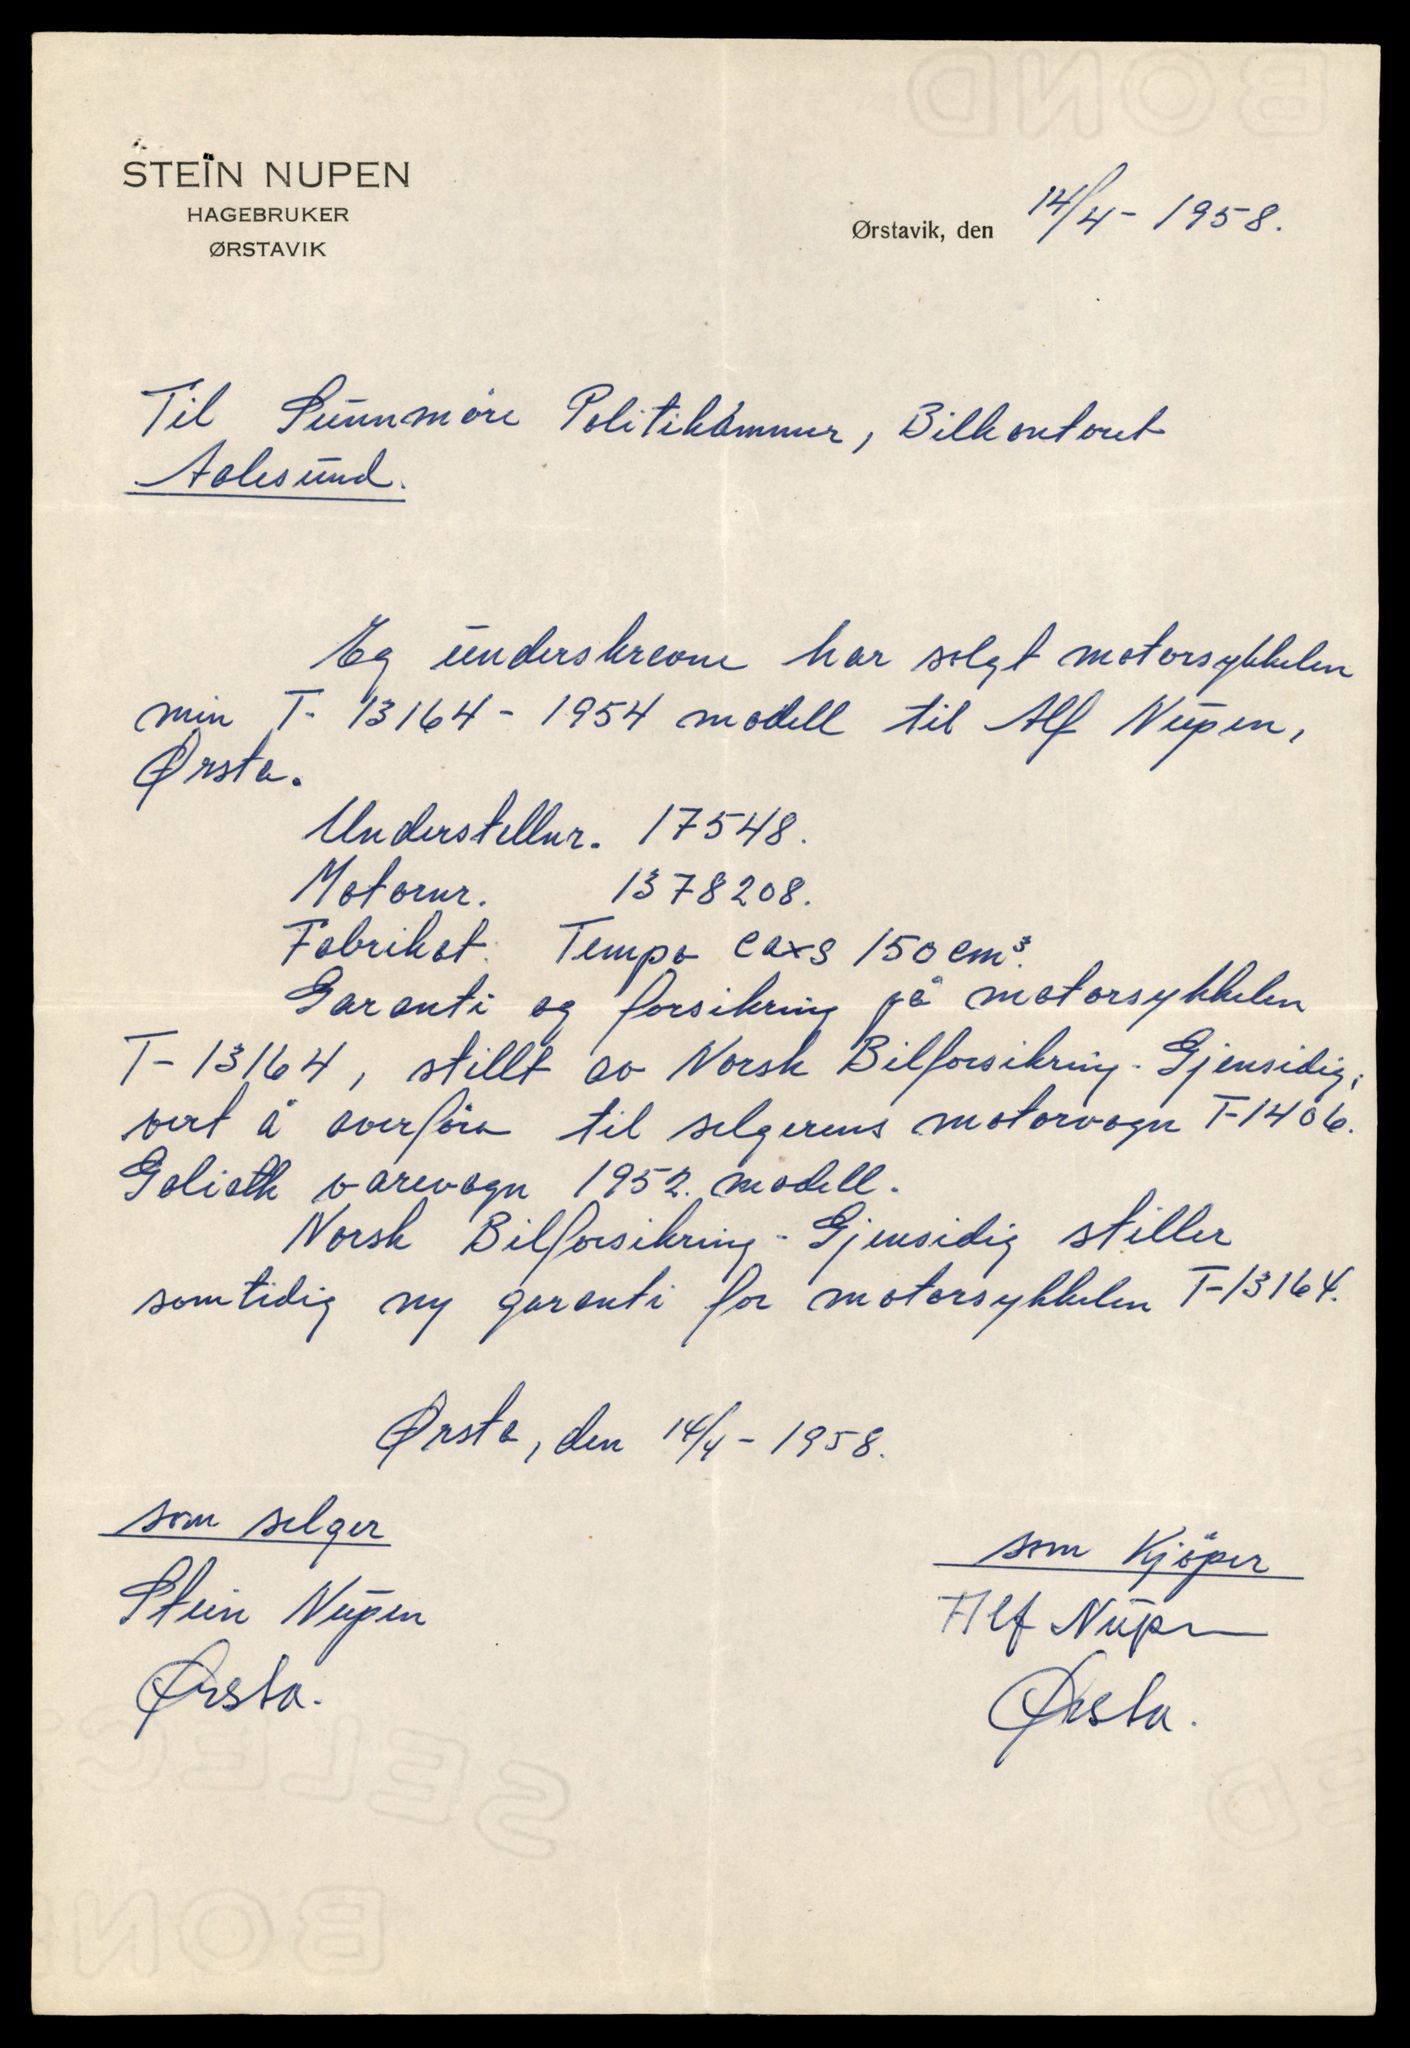 STEIN NUPEN
HAGEBRUKER
ØRSTAVIK
Ørstavik, den 14/4 - 1958.
Til Sunnmöre Politikammer, Bilkontoret
Aalesund.
Eg underskrevne har solgt motorsykkelen
min T- 13164 - 1954 modell til Alf Nupen,
Ørsta.
Understellnr. 17548.
Motornr. 1378208.
Fabrikat. Tempo 150 cm³.
Garanti og forsikring på motorsykkelen
T-13164, stillt av Norsk Bilforsikring - Gjensidig,
vert å overföra til selgerens motorvogn T-1406.
Goliath varevogn 1952. modell.
Norsk Bilforsikring - Gjensidig stiller
samtidig ny garanti for motorsykkelen T-13164.
Ørsta, den 14/4 - 1958.
som selger
Stein Nupen
Ørsta.
som Kjöper
Alf Nupen
Ørsta.
BOND
SELEC
ED
BON